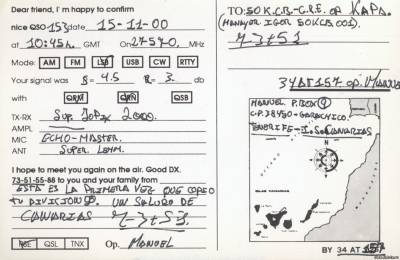 Dear friend, I'm happy to confirm
nice QSO 153 date 15-11-00
at 10:45h. GMT On 27570. MHz
Mode: AM FM LSB USB CW RTTY
Your signal was S = 4.5 R = 3. db
with QRM QRN QSB
TX-RX Sup. Jopix 2000.
AMPL
MIC ECHO-MASTER.
ANT SUPER. LEMM.
I hope to meet you again on the air. Good DX.
73-51-55-88 to you and your family from
ESTA ES LA PRIMERA VEZ QUE COPIO
TU DIVISION. UN SALUDO DE
CANARIAS 73+51.
NSE QSL TNX Op. MANUEL
TO: 50 K.CB-C.R.E. OP KAPA.
(MANAGER IGOR 50KCB.001).
73+51
34AT157 op.
MANUEL P.BOX 9
C.P. 38450-GARACHICO.
TENERIFE-I.S. CANARIAS
ISLAS CANARIAS
BY 34 AT 157